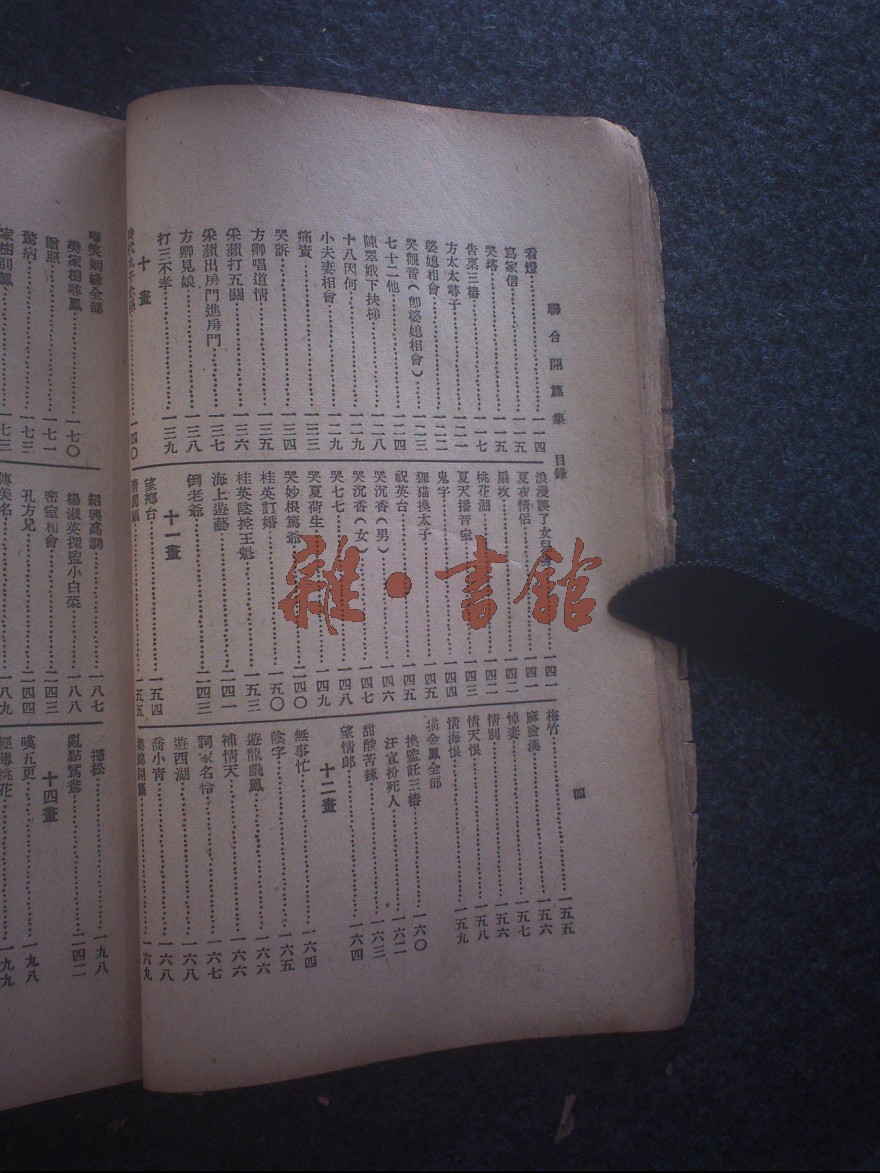 聯合開篇集 目錄
四
看燈 一一四
寫家信 一一五
哭塔 一一五
告稟三樁 一一七
方太太尋子 一二一
婆媳相會 一二二
哭觀音(卽婆媳相會) 一二三
七十二他 一二四
陳翠娥下扶梯 一二八
十八因何 一二九
小夫妻相會 一二九
痛責 一三三
哭訴 一三四
方卿唱道情 一三五
采蘋打五關 一三六
采蘋出房門進房門 一三七
方卿見娘 一三八
打三不孝 一三九
十畫
一四〇
浪漫誤了女兒 一四一
夏夜情侶 一四一
扇坟 一四二
桃花湖 一四二
夏天播音室 一四三
鬼字 一四四
狸猫換太子 一四五
祝英台 一四五
哭沉香(男) 一四六
哭沉香(女) 一四七
哭七七 一四八
哭夏荷生 一四九
哭妙根篤爺 二四〇
桂英訂婚 一五〇
桂英陰控王魁 一五三
海上遊藝 二四一
倒老爺 二四三
十一畫
望鄉台 一五四
一五五
梅竹 一五五
麻臉漢 一五六
悼妻 一五七
情別 一五六
情天恨 一五八
情海恨 一五九
描金鳳全部
換監託三樁 一六〇
汪宣扮死人 一六二
甜酸苦辣 一六三
望情郎 一六四
十二畫
無事忙 一六四
陰字 一六五
遊龍戲鳳 一六六
補情天 一六六
詞家名伶 一六七
遊西湖 一六八
喬小青 一六八
集錦開篇 一六九
啼笑姻緣全部
樊家樹尋鳳 一七〇
贈照 一七一
驚病 一七三
家樹別鳳 一七三
紹興高調 一八七
楊淑英探監小白菜 一八八
密室相會 二四三
孔方兄 二四四
傳美名 一八九
掃松 一九八
亂點鴛鴦 二四二
十四畫
嘆五更 一九八
一九九
雜·書館